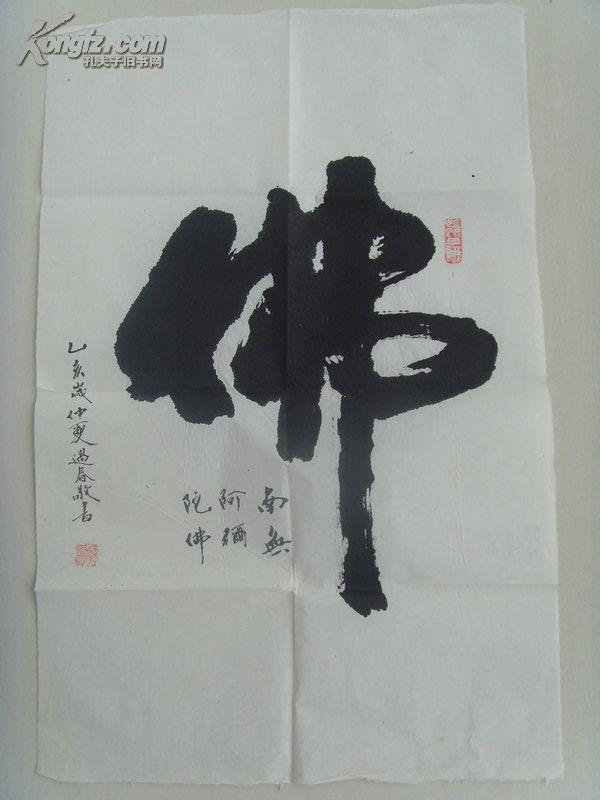 Kongfz.com
孔夫子旧书网
佛
南無
阿彌
陀佛
乙亥歲仲夏遇春敬書